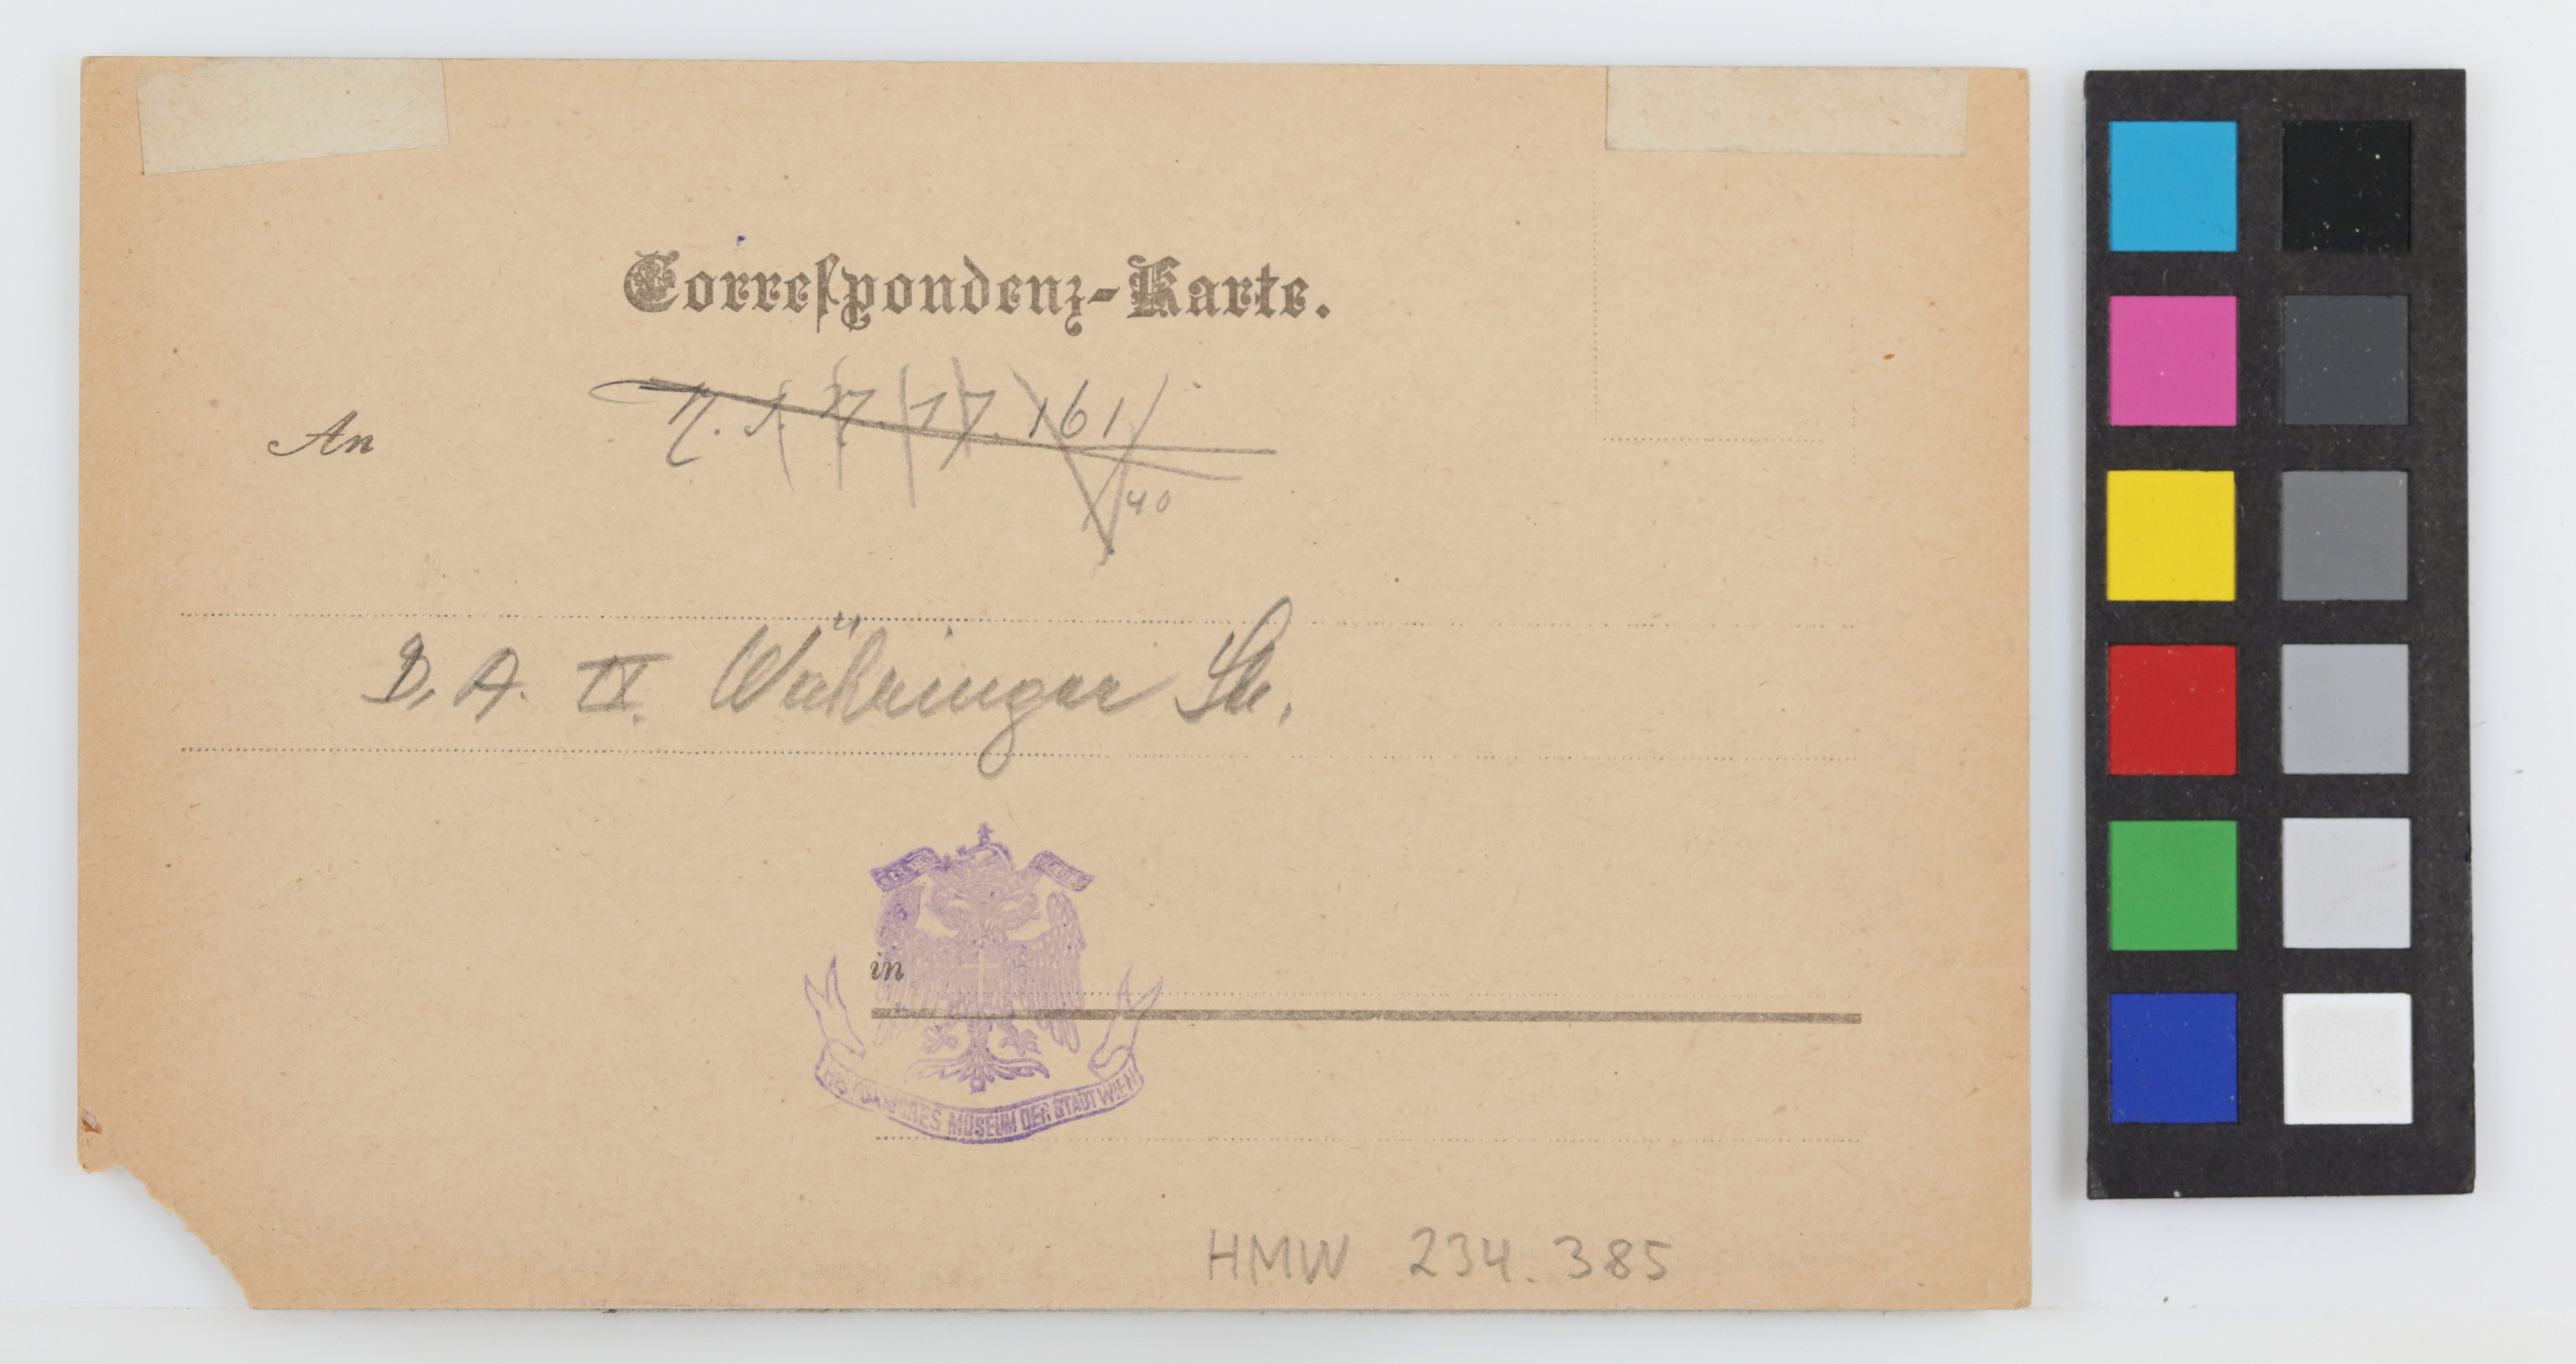 Correſpondenz-Karte.
An
161
40
D. A. IX. Währinger Str.
in
HISTORISCHES MUSEUM DER STADT WIEN
HMW 234.385